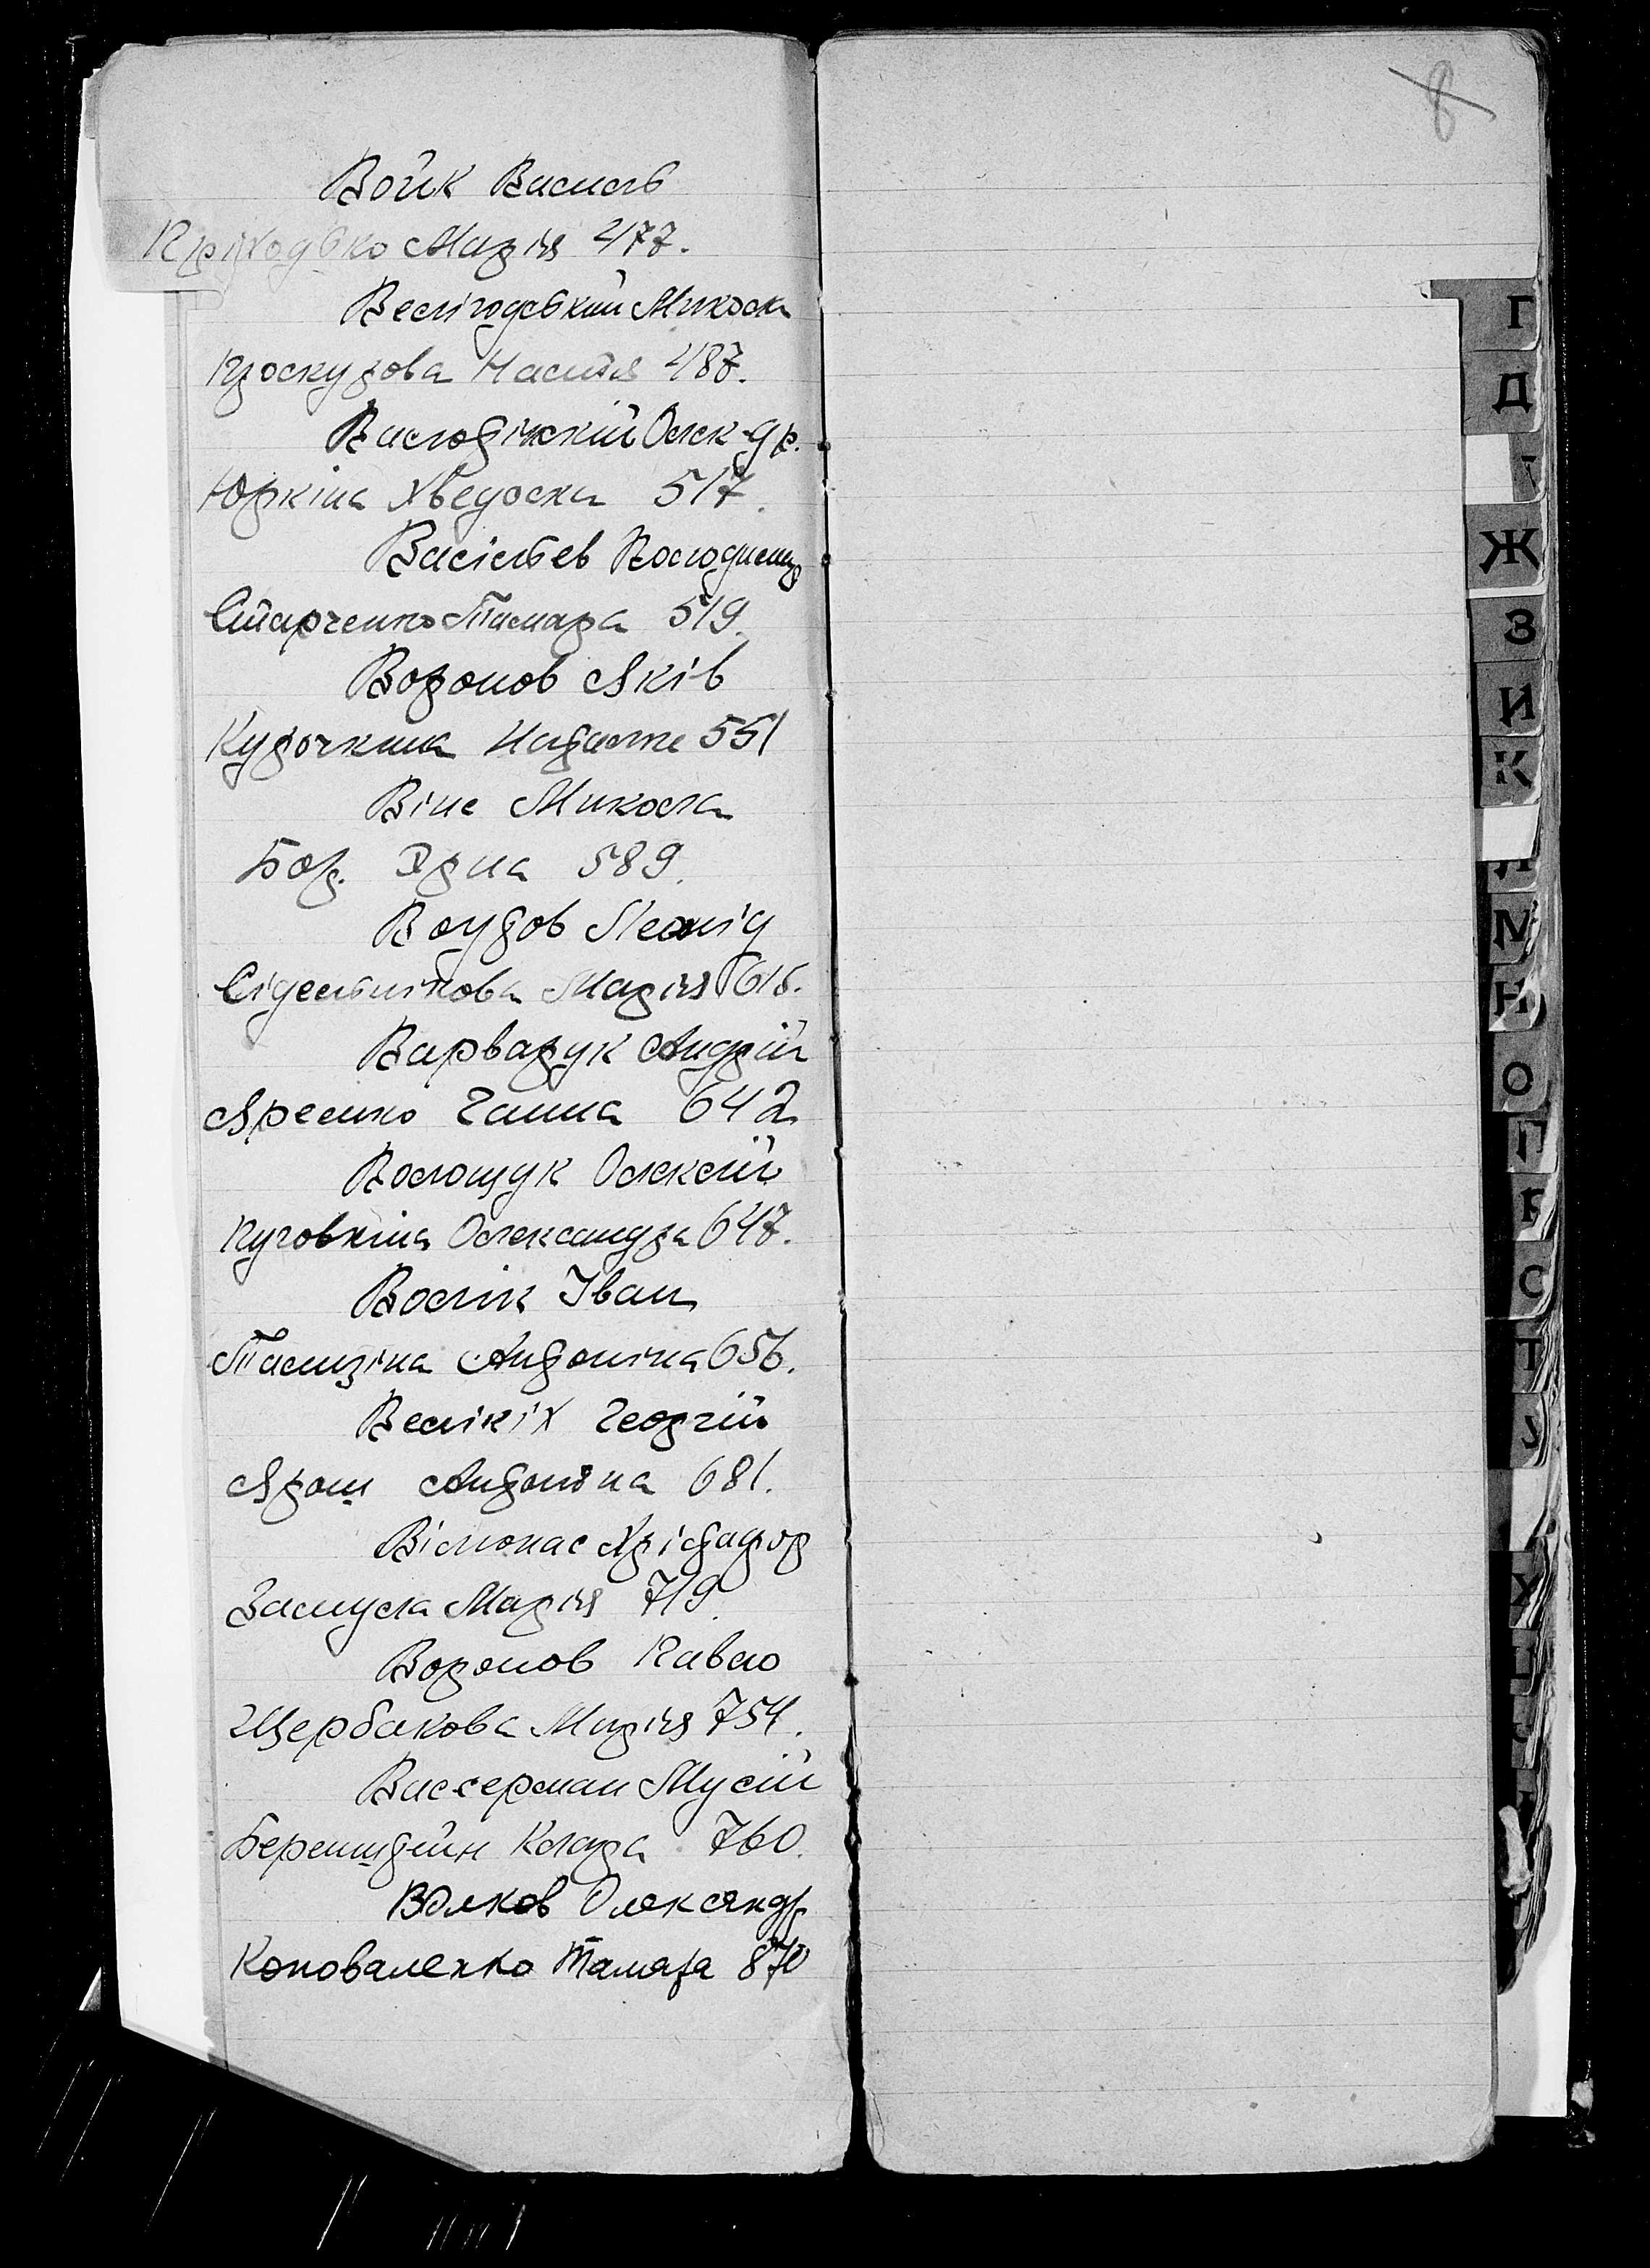 8
Войк Василь
Пріходько Марія 477.
Велігодський Микола
Проскурова Настя 487.
Олек-др.
Юркіна Хведоска 517.
Васільев Володимир
Старченко Тамара 519.
Воронов Яків
Курочкина Наталя 551
Віне Микола
Бор. Ірна 589.
Леонід
Сідельнікова Марія 616.
Варварук Андрій
Яренко Ганна 642
Волощук Олексій
Пуговкіна Олександра 647.
Волік Іван
Антоніна 656.
Велікіх Георгій
Ярош Антоніна 681.
Вільонас Хрістафор
Замула Марія 719.
Воронов Павло
Щербакова Марія 754.
Вассерман Мусій
Беренштейн Клара 760.
Волков Олександр
Коноваленко Тамара 870
Г
Д
Ж
З
И
К
Л
М
Н
О
П
Р
С
Т
У
Х
Ц